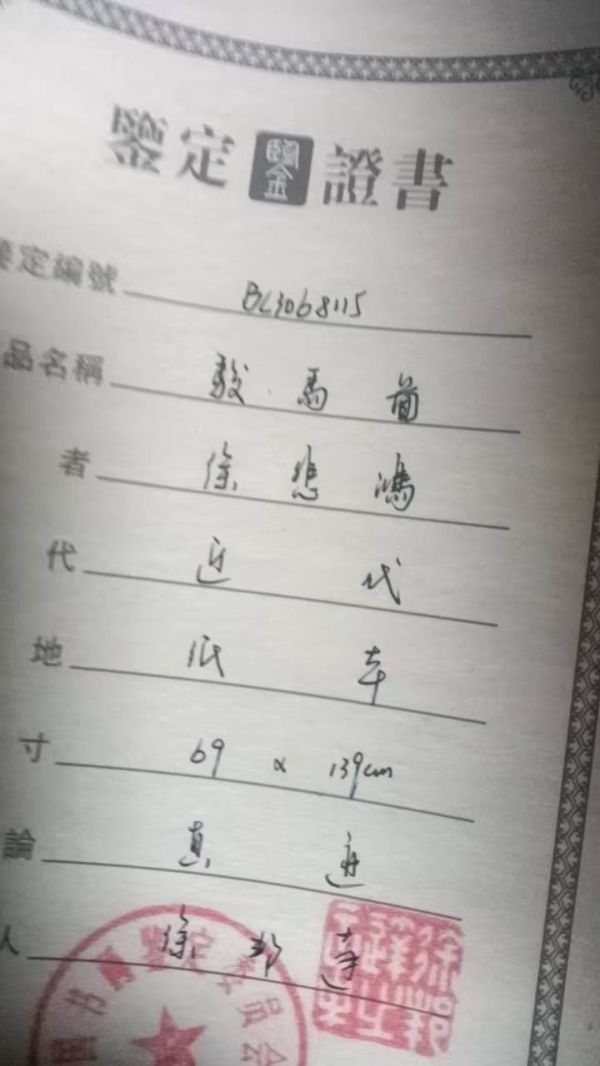 鑒定證書
定編號 BL3068115
品名稱 駿馬圖
者 徐悲鴻
代 近代
地 纸本
寸 69 × 139cm
論 真迹
人 徐邦達
书画鉴定委员会